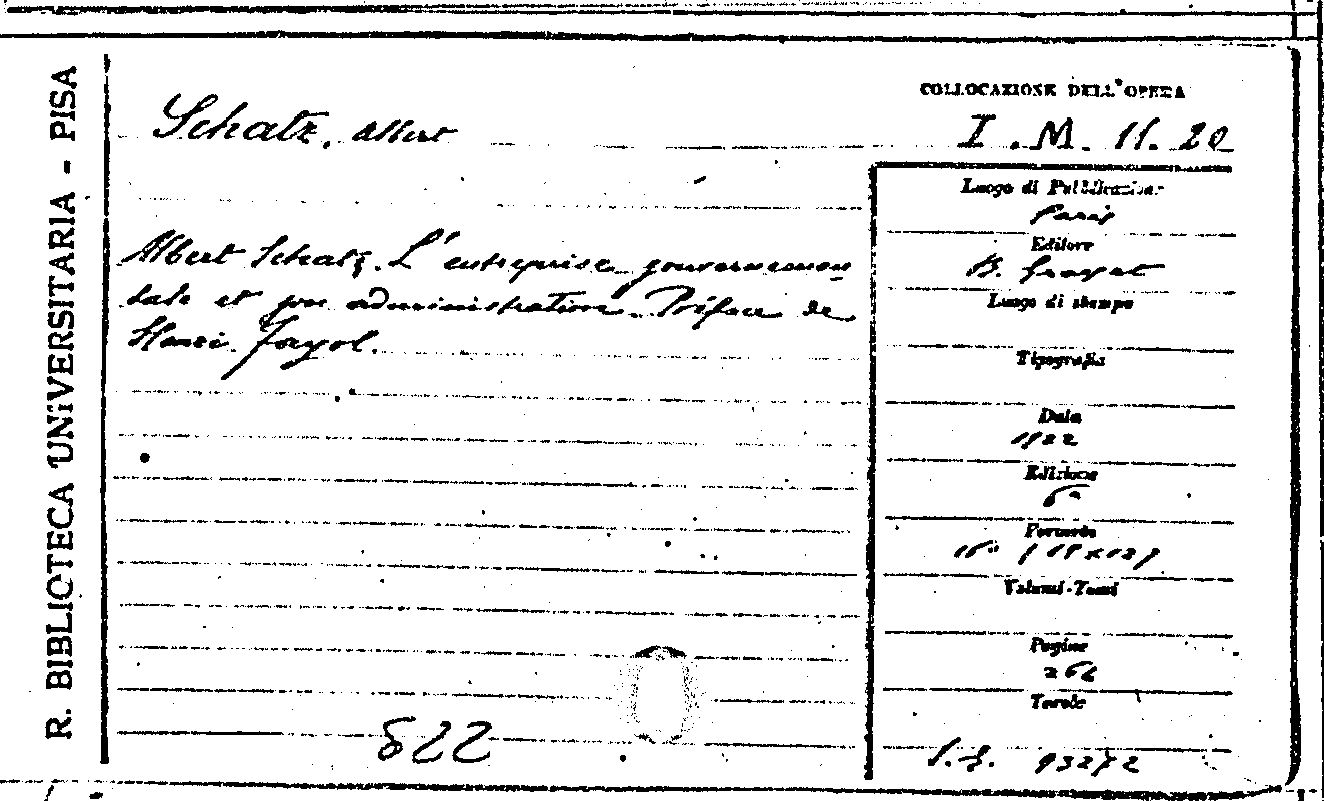 R. BIBLIOTECA UNIVERSITARIA - PISA
Schatz, Albert
COLLOCAZIONE DELL'OPERA
I. M. 11. 20
Albert Schatz. L'entreprise gouvernemen
tale et son administration. Préface de
Henri Fayol.
Luogo di Pubblicazione
Paris
Editore
B. Grasset
Luogo di stampa
Tipografia
Data
1922
Edizione
6ª
Formato
16°
Volumi-Tomi
Pagine
Tavole
93272
822